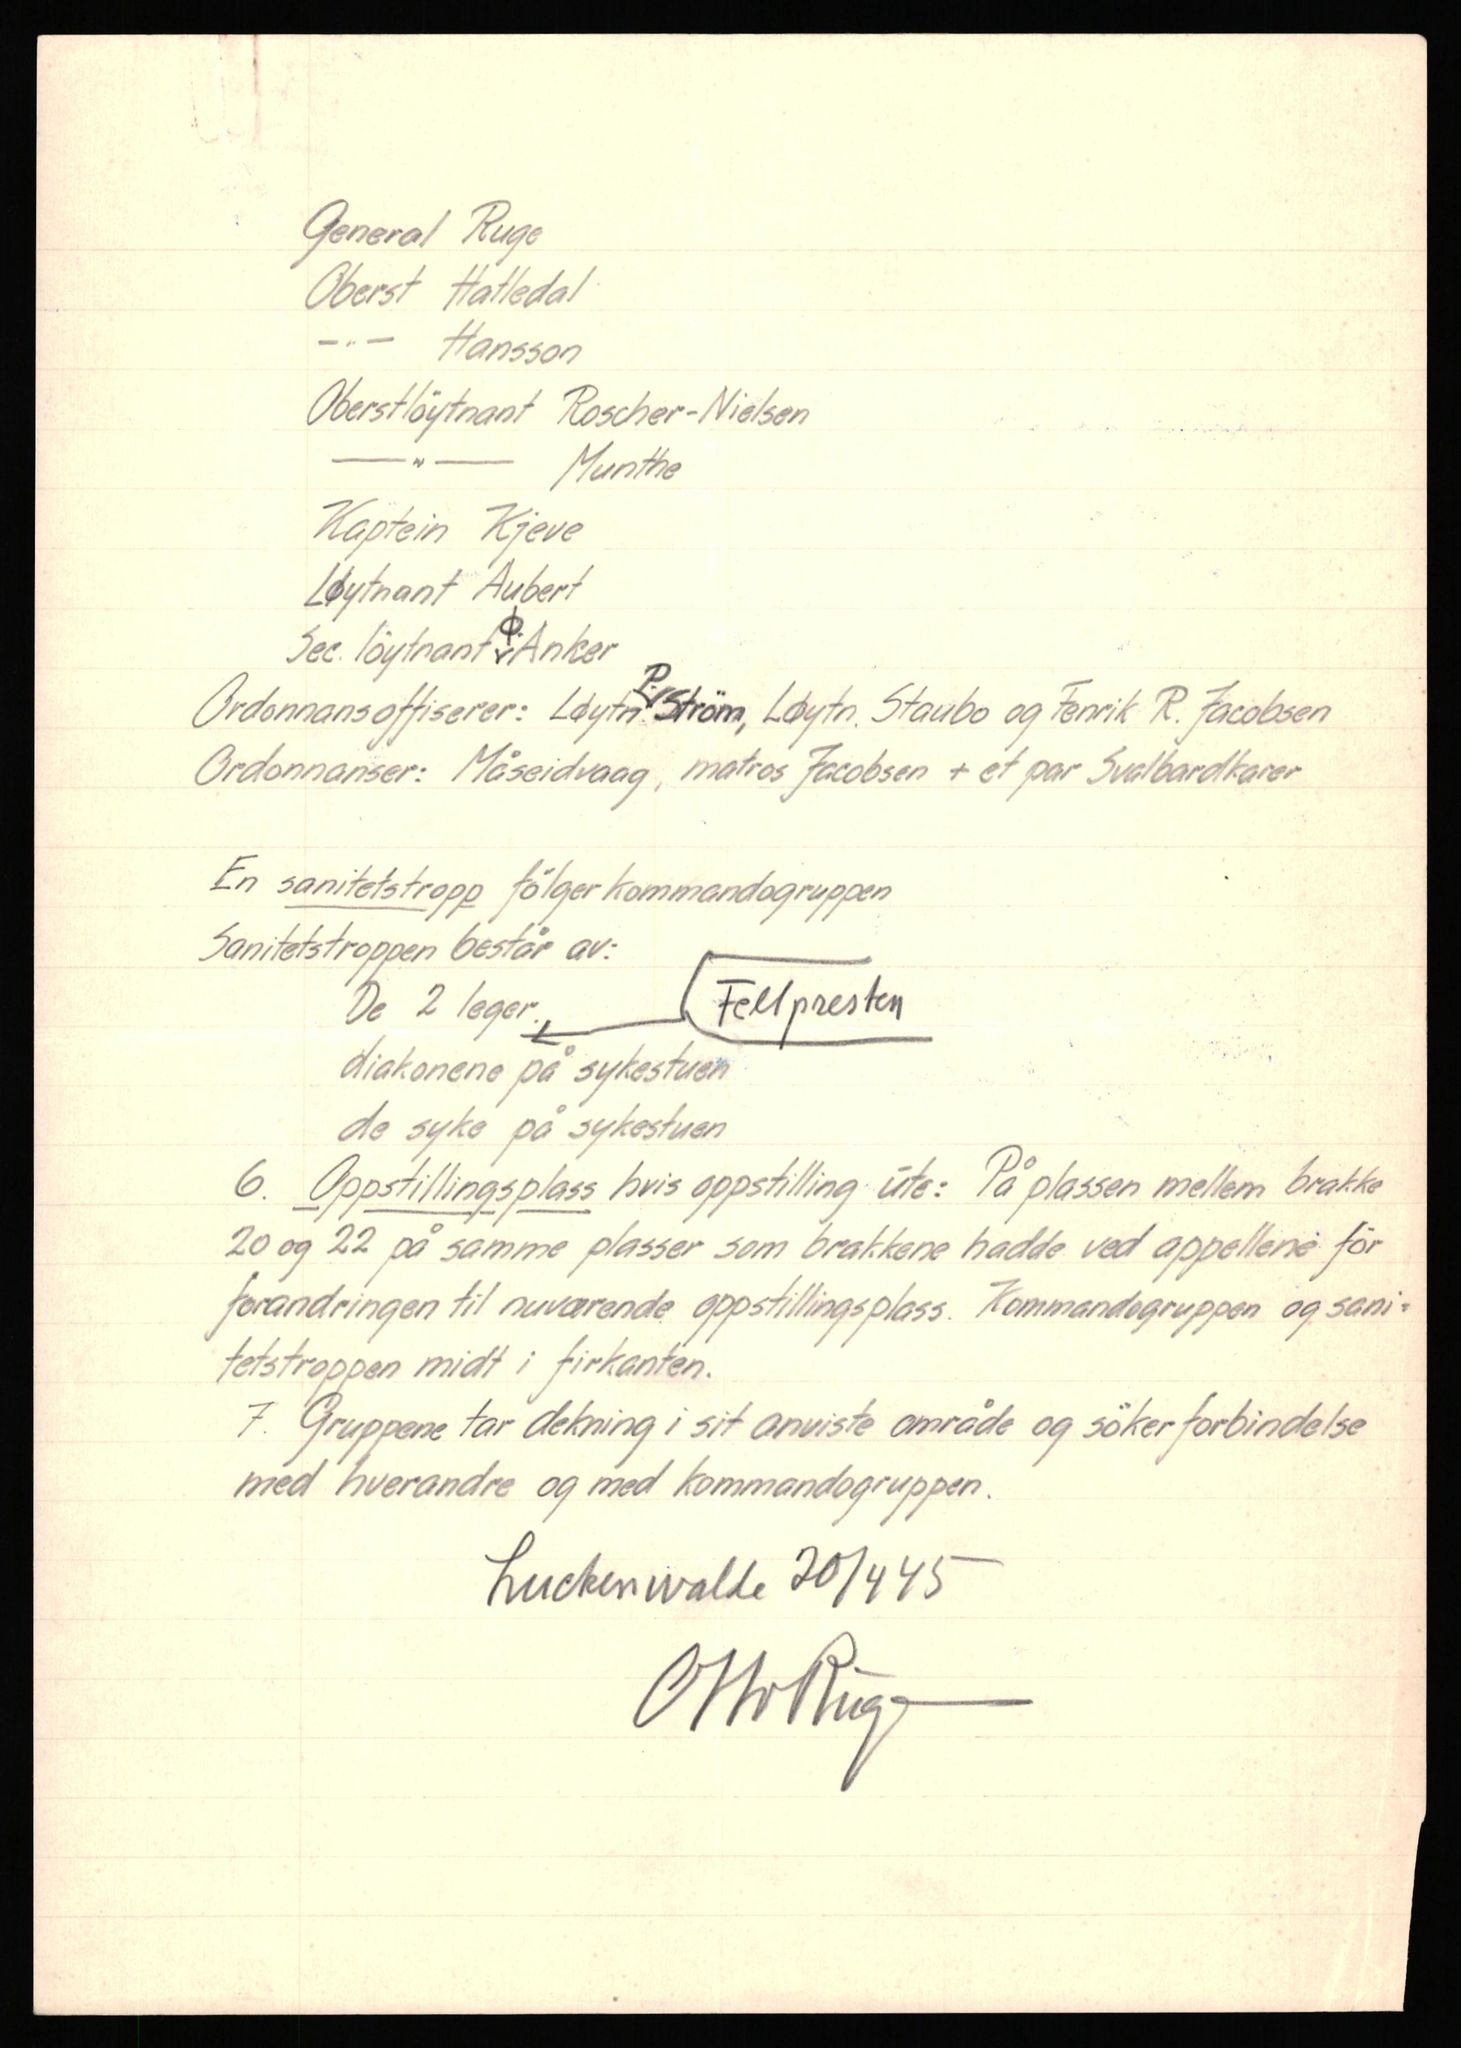 General Ruge
Oberst Hatledal
—"— Hansson
Oberstlöytnant Roscher-Nielsen
—"— Munthe
Kaptein Kjeve
Løytnant Aubert
Sec. löytnant Ø. Anker
Ordonnansoffiserer: Løytn. P. Ström, Løytn. Staubo og Fenrik R. Jacobsen
Ordonnanser: Måseidvaag, matros Jacobsen + et par Svalbardkarer
En sanitetstropp fölger kommandogruppen
Sanitetstroppen består av:
De 2 leger.
Feltpresten
diakonene på sykestuen
de syke på sykestuen
6. Oppstillingsplass hvis oppstilling ute: På plassen mellem brakke
20 og 22 på samme plasser som brakkene hadde ved appellene för
forandringen til nuværende oppstillingsplass. Kommandogruppen og sani-
tetstroppen midt i firkanten.
7. Gruppene tar dekning i sit anviste område og söker forbindelse
med hverandre og med kommandogruppen.
Luckenwalde 20/4 45
Otto Ruge